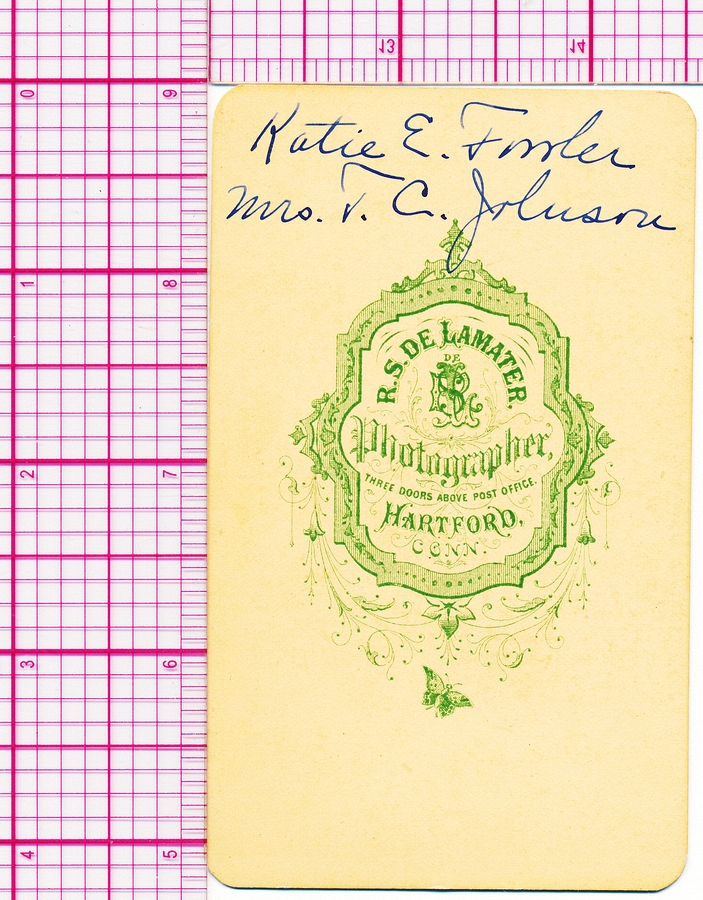 13 14
0 9
1 8
2 7
3 6
4 5
Katie E. Fowler
Mrs. T. C. Johnson
R. S. DE LAMATER.
DE
Photographer,
THREE DOORS ABOVE POST OFFICE.
HARTFORD,
CONN.